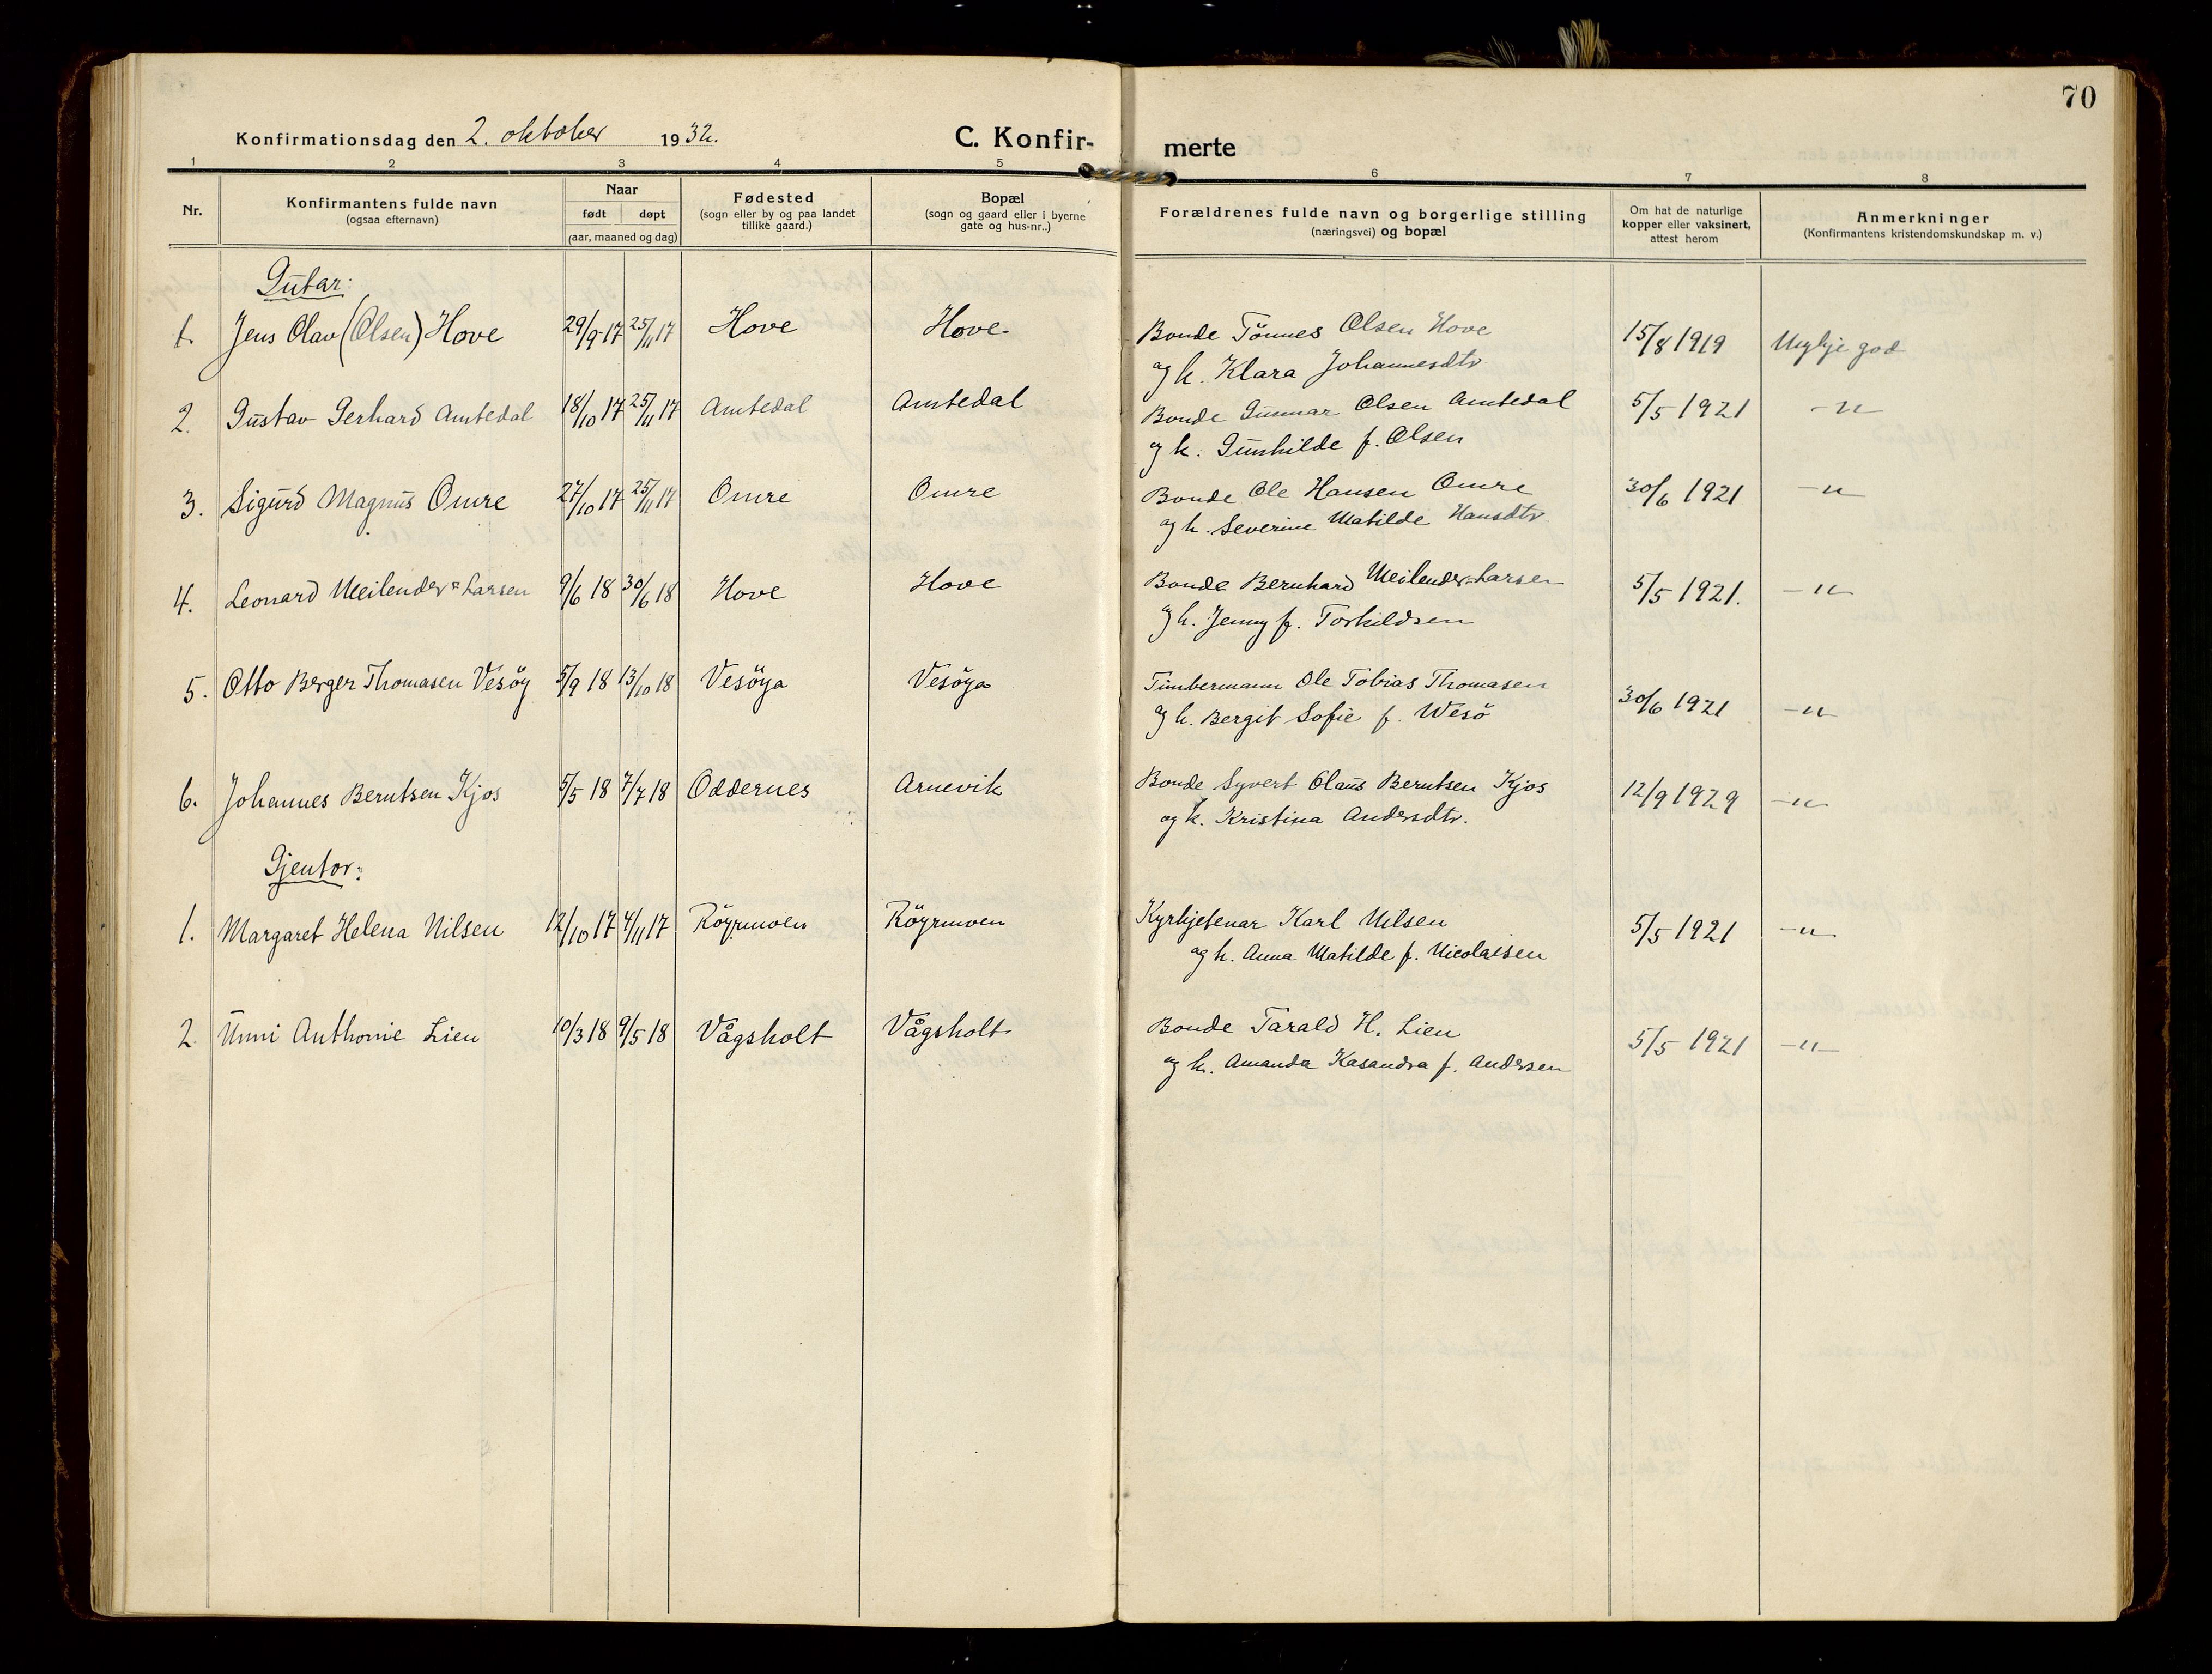 70
Konfirmationsdag den 2. oktober 1932.
C. Konfir-
merte
1 2 3 4 5 6 7 8
Nr.
Konfirmantens fulde navn
(ogsaa efternavn)
Naar
født døpt
(aar, maaned og dag)
Fødested
(sogn eller by og paa landet
tillike gaard.)
Bopæl
(sogn og gaard eller i byerne
gate og hus-nr..)
Forældrenes fulde navn og borgerlige stilling
(næringsvei) og bopæl
Om hat de naturlige
kopper eller vaksinert,
attest herom
Anmerkninger
(Konfirmantens kristendomskundskap m. v.)
Gutar:
1. Jens Olav (Olsen) Hove 29/9-17 25/11 17 Hove Hove. Bonde Tönnes Olsen Hove 15/8 1919 Mykje god
og k. Klara Johannesdtr.
2. Gustav Gerhard Amtedal 18/10 17 25/11 17 Amtedal Amtedal Bonde Gunnar Olsen Amtedal 5/5 1921 -"-
og k. Gunhilde f. Olsen
3. Sigurd Magnus Omre 27/10 17 25/11 17 Omre Omre Bonde Ole Hansen Omre 30/6 1921 -"-
og k. Severine Matilde Hansdtr.
4. Leonard Meilender=Larsen 9/6 18 30/6 18 Hove Hove Bonde Bernhard Meilender=Larsen 5/5 1921. -"-
og k. Jenny f. Torkildsen
5. Otto Berger Thomasen Vesöy 5/9 18 13/10 18 Vesöya Vesöya Timbermann Ole Tobias Thomasen 30/6 1921 -"-
og k. Bergit Sofie f. Wesö
6. Johannes Berntsen Kjos 5/5 18 7/7 18 Oddernes Arnevik Bonde Syvert Olaus Berntsen Kjos 12/9 1929 -"-
og k. Kristina Andersdtr.
Gjentor:
1. Margaret Helena Nilsen 12/10 17 4/11 17 Röyrmoen Röyrmoen Kyrkjetenar Karl Nilsen 5/5 1921 -"-
og k. Anna Matilde f. Nicolaisen
2. Unni Anthonie Lien 10/3 18 9/5 18 Vågsholt Vågsholt Bonde Tarald H. Lien 5/5 1921 -"-
og k. Amanda Kasandra f. Andersen